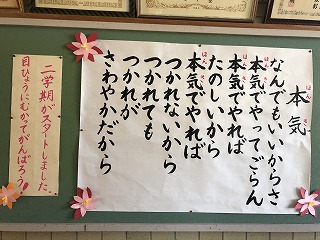 本気
なんでもいいからさ
本気でやってごらん
本気でやれば
たのしいから
本気でやれば
つかれないから
つかれても
つかれが
さわやかだから
二学期がスタートしました。
目ひょうにむかってがんばろう!